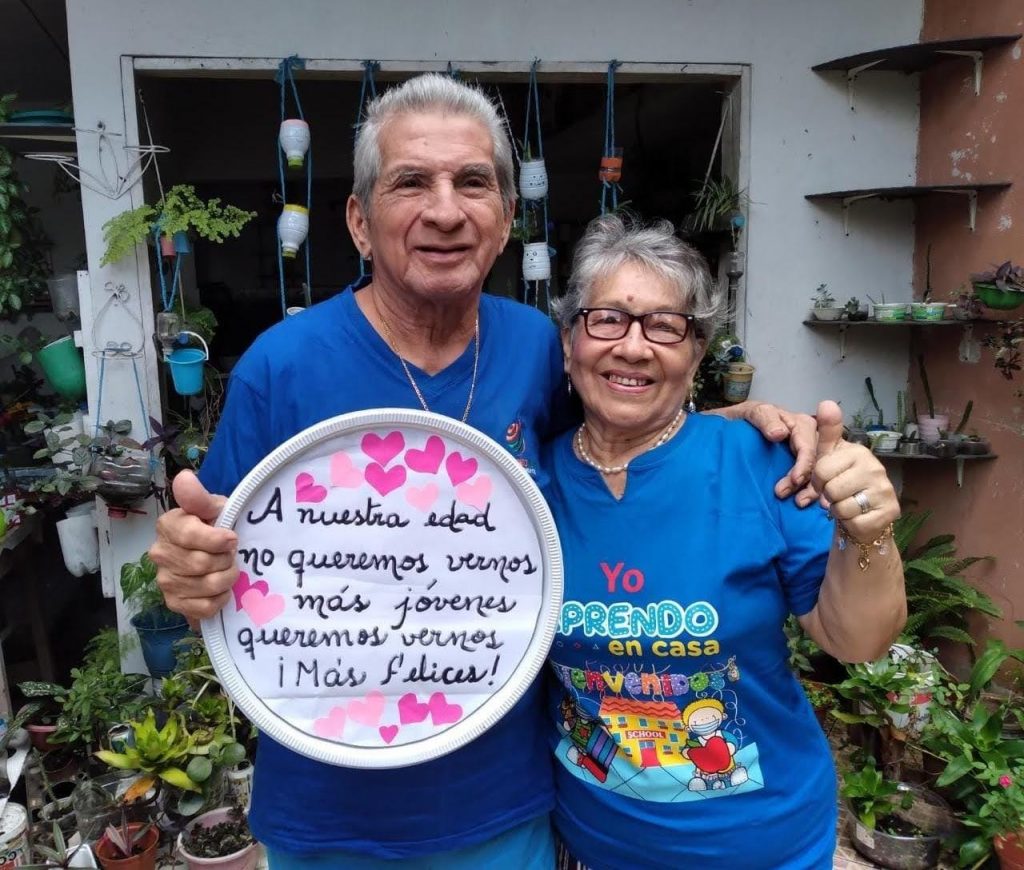 A nuestra edad
no queremos vernos
más jóvenes
queremos vernos
¡Más felices!
Yo
APRENDO
en casa
Bienvenidos
SCHOOL